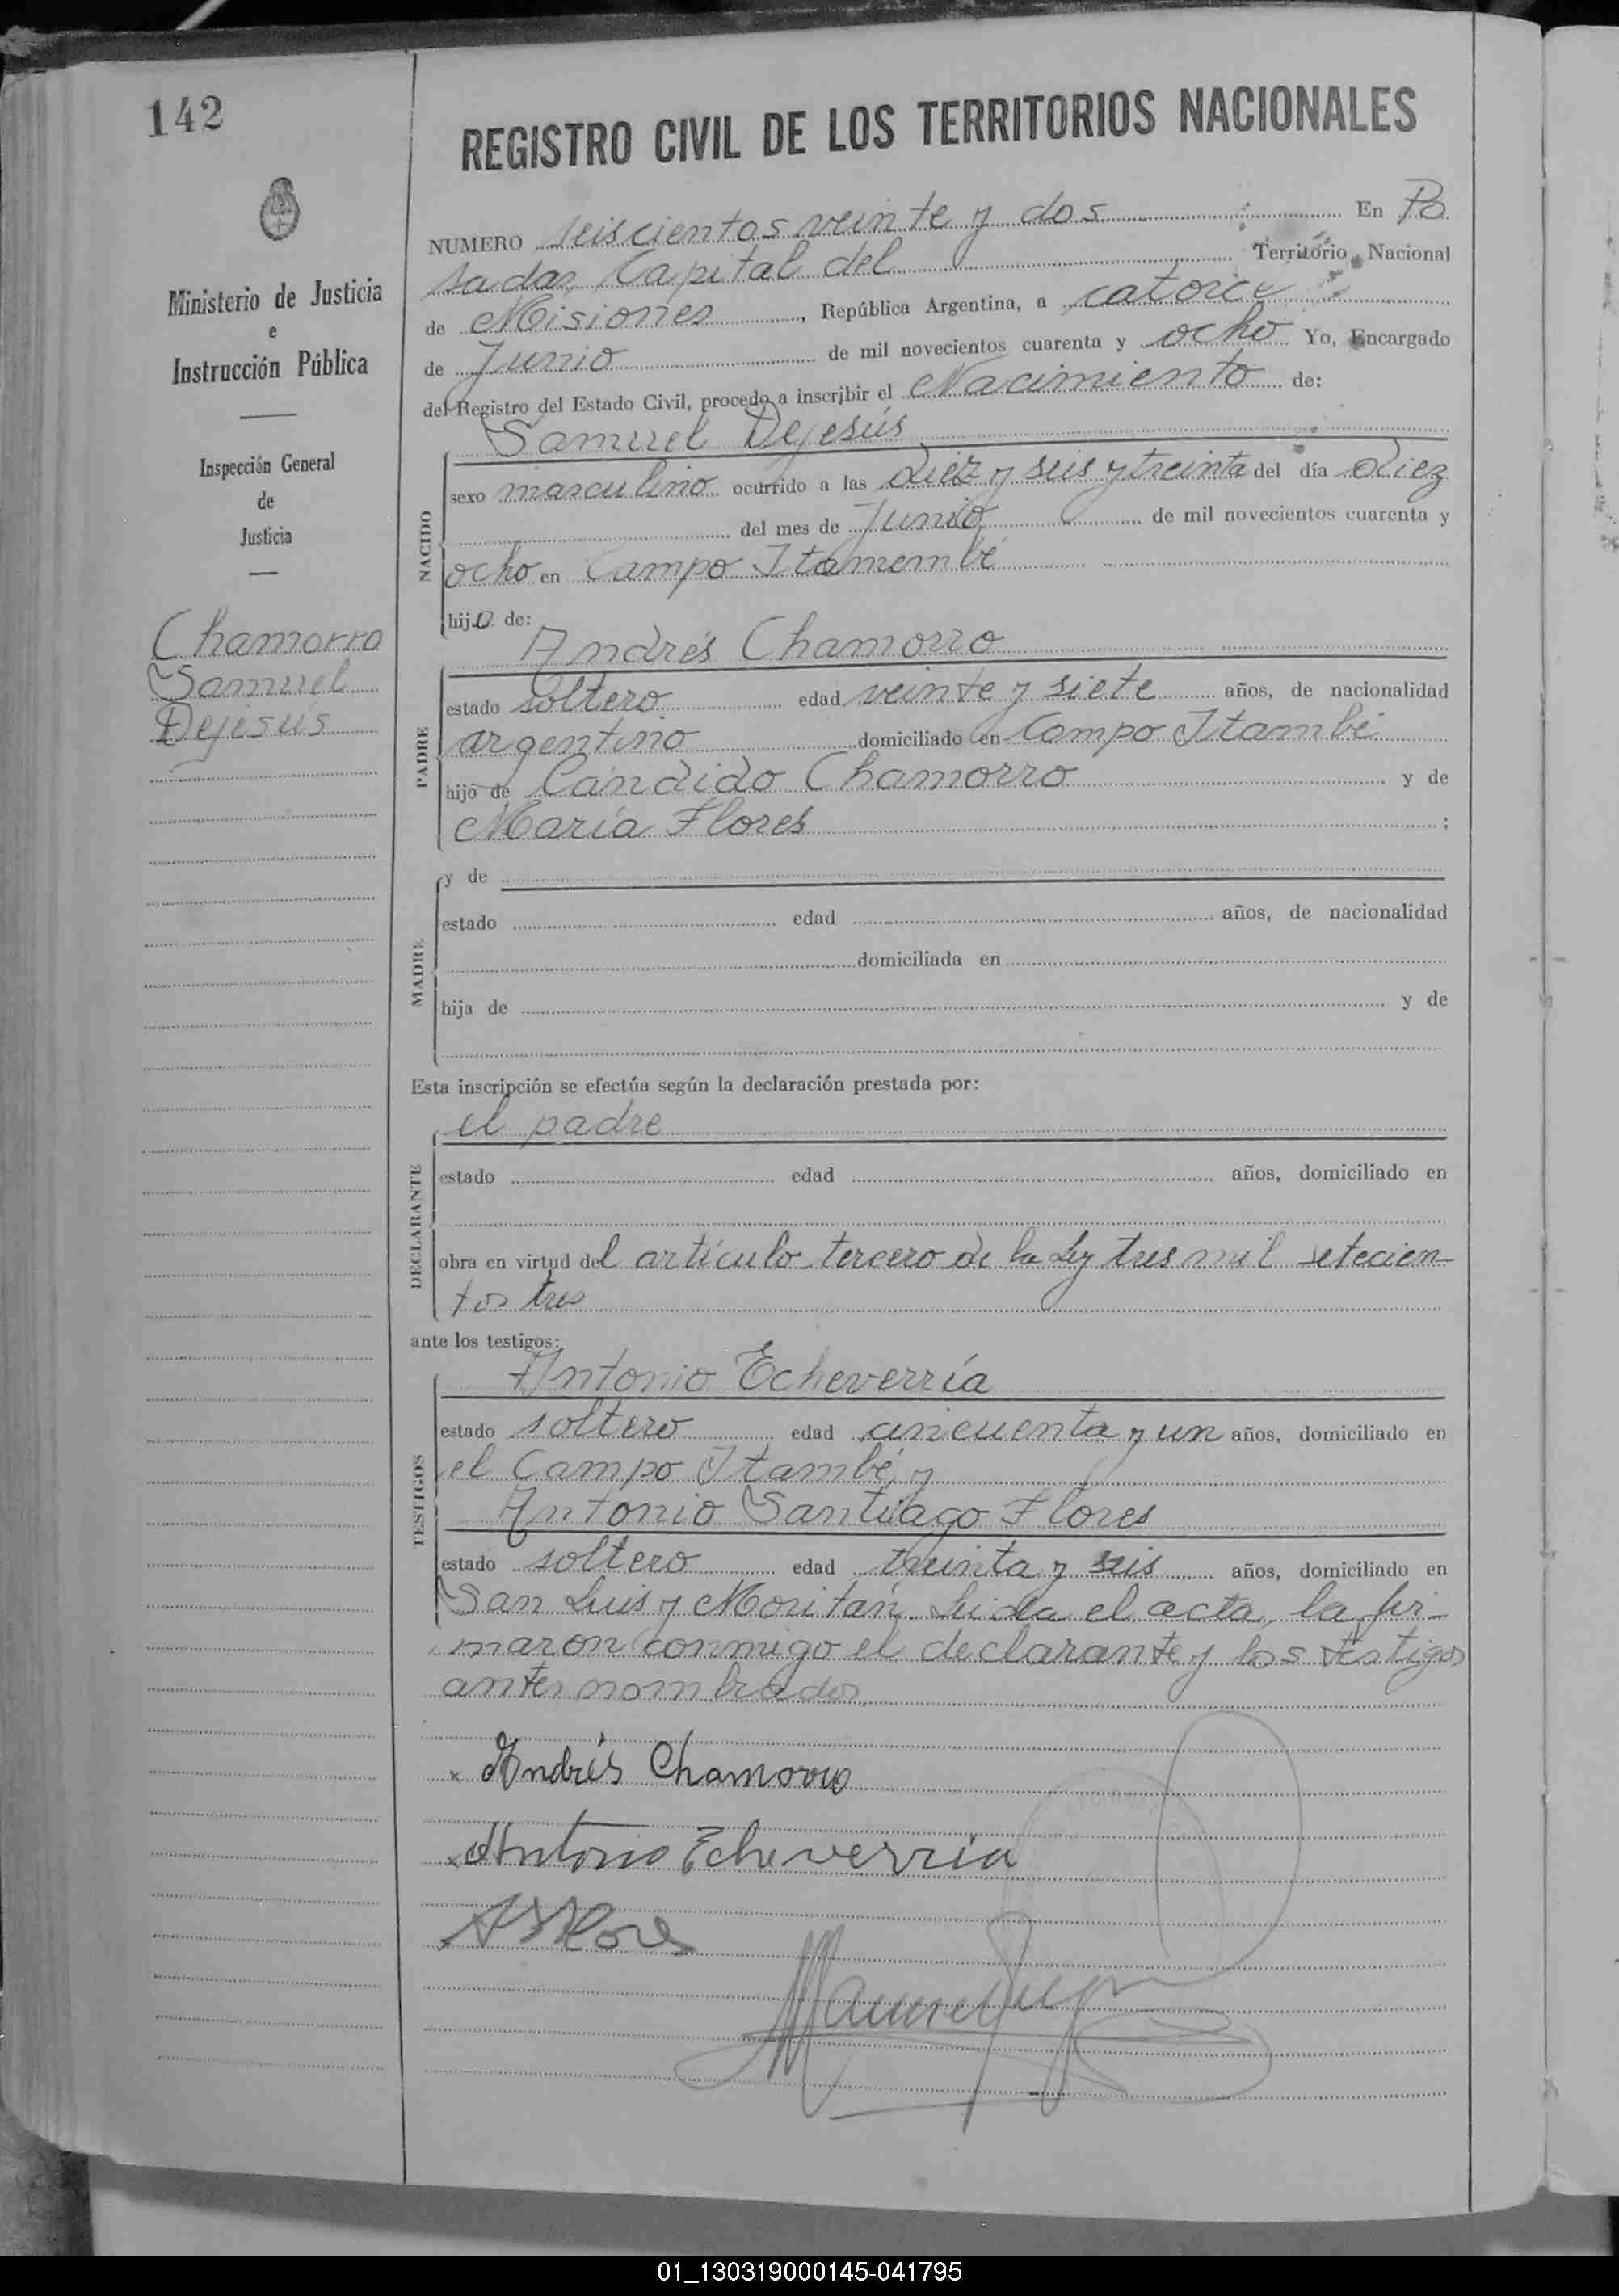 142
REGISTRO CIVIL DE LOS TERRITORIOS NACIONALES
Ministerio de Justicia
e
Instrucción Pública
Inspección General
de
Justicia
Chamorro
Samuel
Dejesús
NUMERO seiscientos veinte y dos En Po
sadas, Capital del Territorio Nacional
de Misiones, República Argentina, a catorce
de Junio de mil novecientos cuarenta y ocho Yo, Encargado
del Registro del Estado Civil, procedo a inscribir el Nacimiento de:
Samuel Dejesús
NACIDO
sexo masculino ocurrido a las diez y seis y treinta del día diez
del mes de Junio de mil novecientos cuarenta y
ocho en Campo Itamembé
hijo de:
Andrés Chamorro
PADRE
estado soltero edad veinte y siete años, de nacionalidad
argentino domiciliado en Campo Itambé
hijo de Cándido Chamorro y de
María Flores ;
MADRE
y de
estado edad años, de nacionalidad
domiciliada en
hija de y de
Esta inscripción se efectúa según la declaración prestada por:
el padre
DECLARANTE
estado edad años, domiciliado en
obra en virtud del artículo tercero de la Ley tres mil setecien-
tos tres
ante los testigos:
Antonio Echeverría
TESTIGOS
estado soltero edad cincuenta y un años, domiciliado en
el Campo Itambé, y
Antonio Santiago Flores
estado soltero edad treinta y seis años, domiciliado en
San Luis y Moritán. Leida el acta, la fir-
maron conmigo el declarante y los testigos
antes nombrados.
x Andrés Chamorro
x Antonio Echeverria
A S Flores
01_130319000145-041795